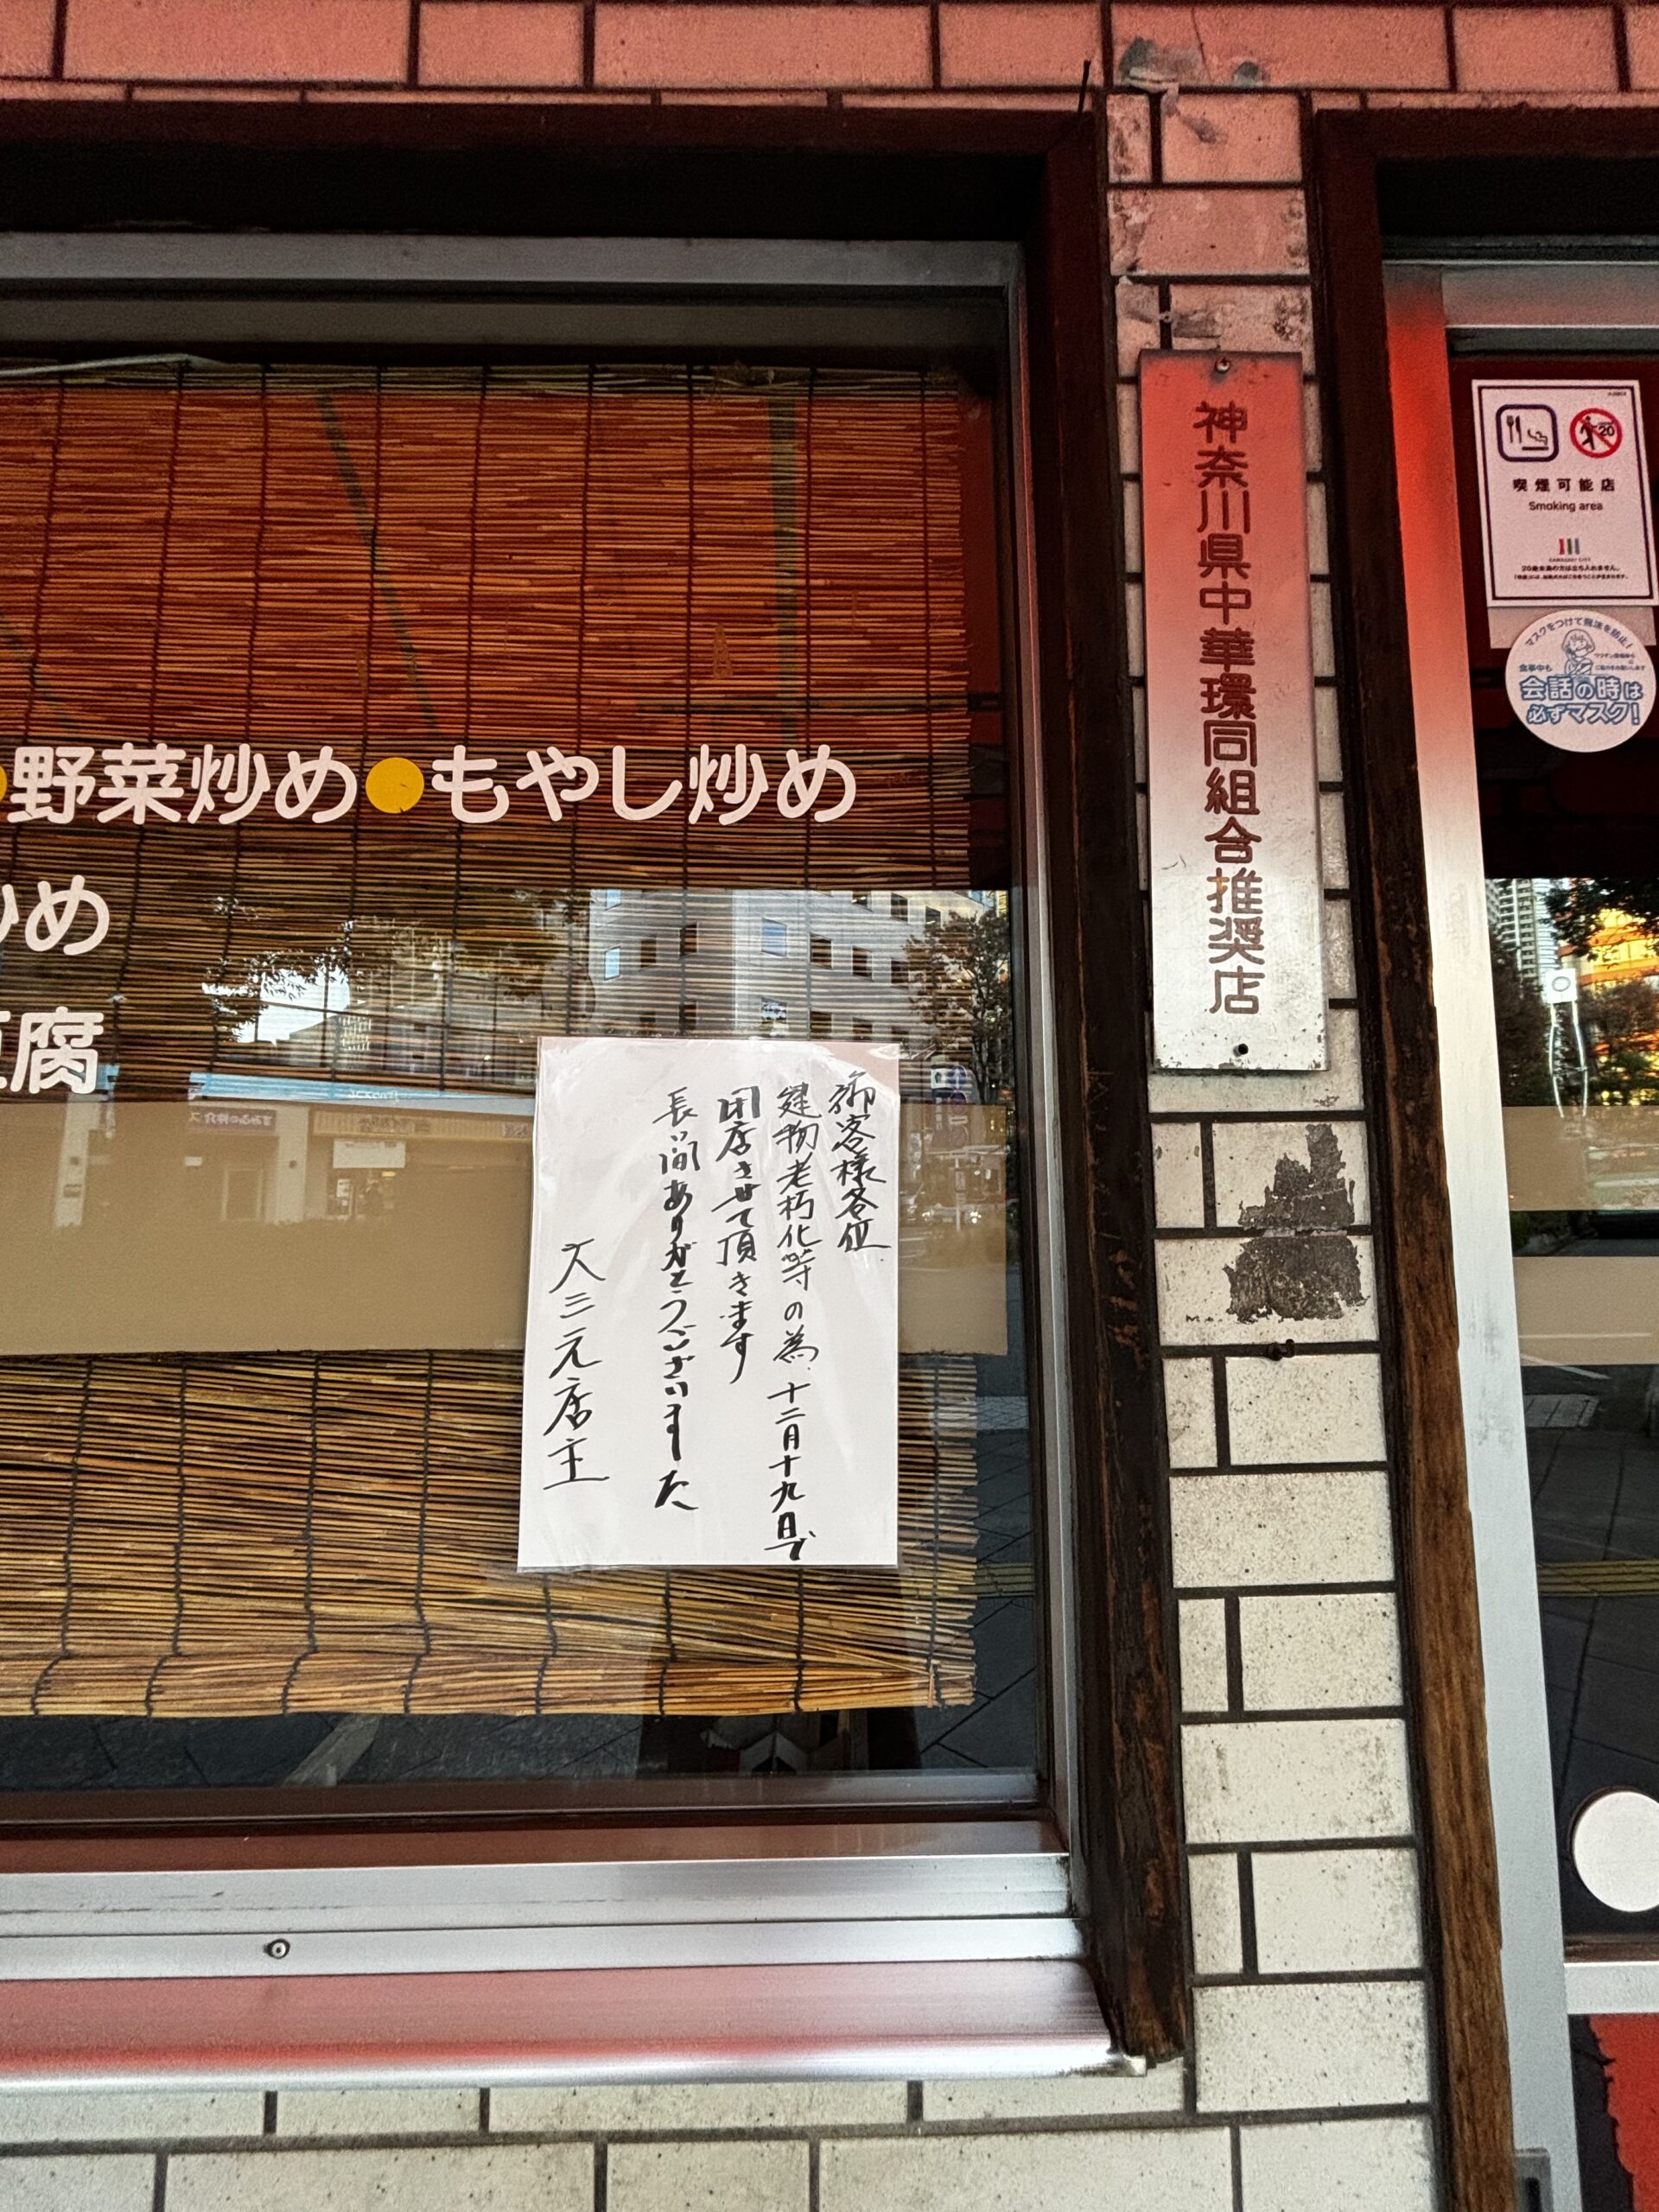 ●野菜炒め●もやし炒め
め
腐
御客様各位
建物老朽化等の為、十二月十九日で
閉店させて頂きます
長い間ありがとうございました
大三元店主
神奈川県中華環同組合推奨店
20
喫煙可能店
Smoking area
KAWASAKI CITY
20歳未満の方は立ち入れません。
マスクをつけて飛沫を防止!
食事中も
会話の時は
必ずマスク!